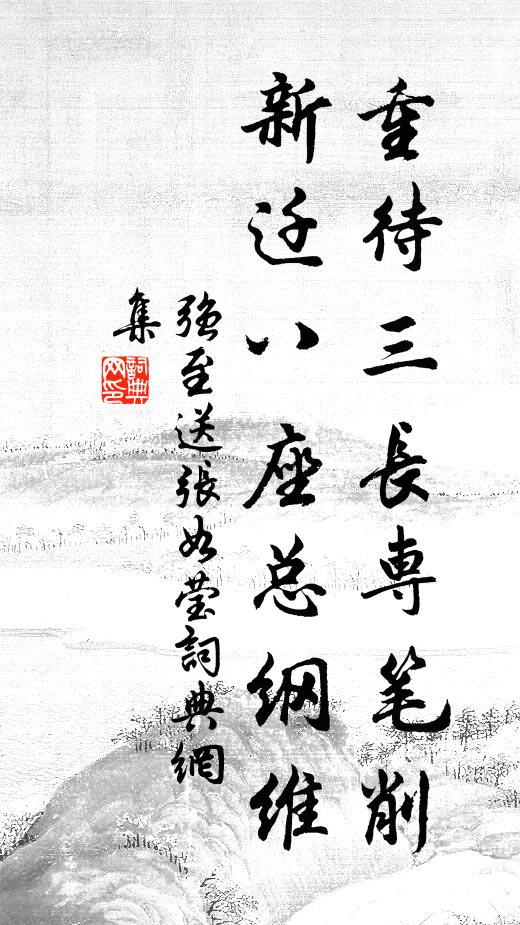 重待三長专笔削
新迁八座总纲维
强至送張如莹詞典網
集
詞典
网印